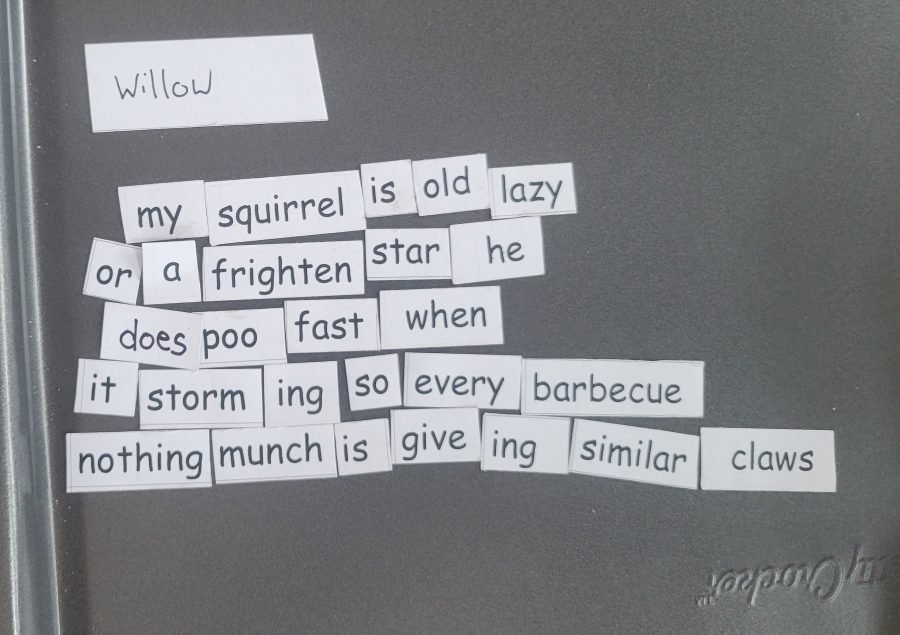 Willow
my squirrel is old lazy
or a frighten star he
does poo fast when
it storm ing so every barbecue
nothing munch is give ing similar claws
myCrocker™